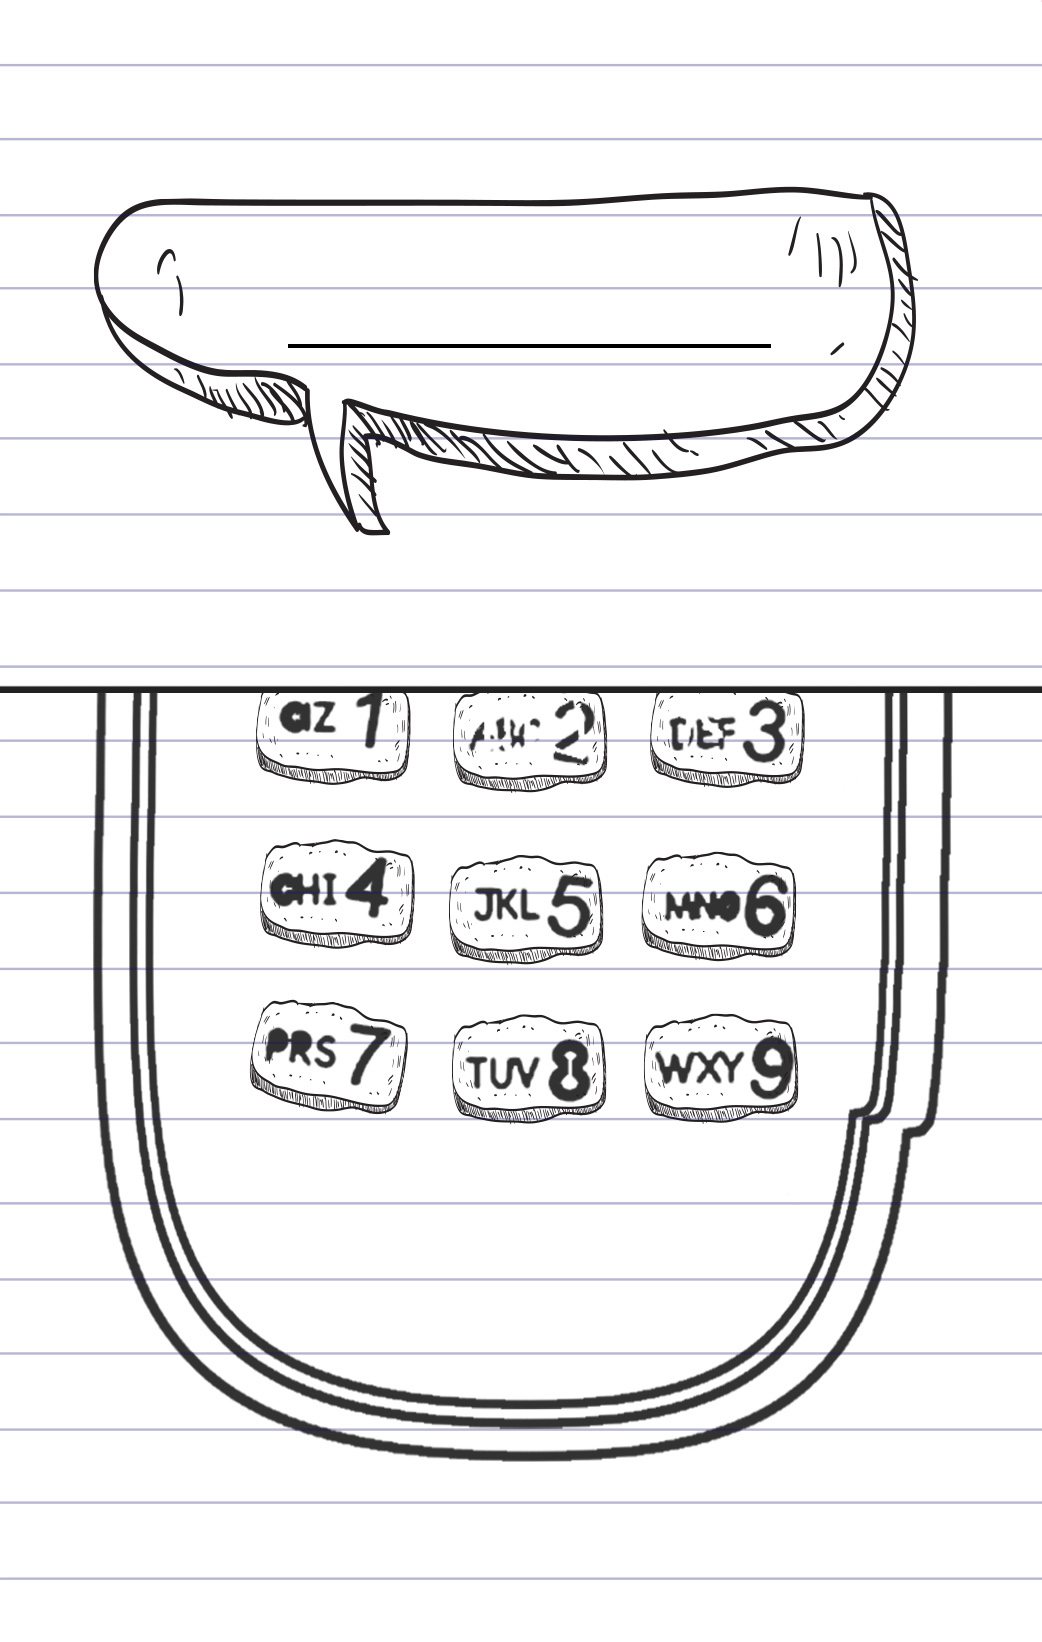 QZ 1 ABC 2 DEF 3
GHI 4 JKL 5 MNO 6
PRS 7 TUV 8 WXY 9